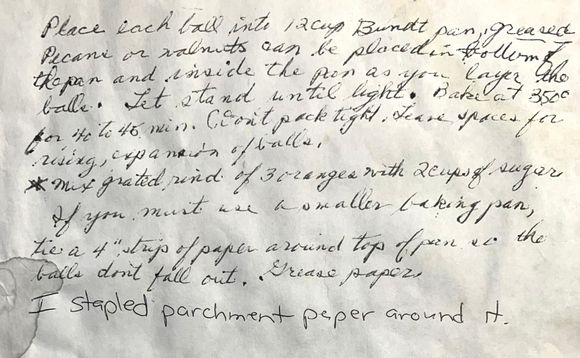 Place each ball into 12 cup Bundt pan, greased
Pecans or walnuts can be placed in bottom of
the pan and inside the pan as you layer the
balls. Let stand until light. Bake at 350°
for 40 to 45 min. (Don't pack tight, leave spaces for
rising, expansion of balls.
* Mix grated rind of 3 oranges with 2 cups of sugar
If you must use a smaller baking pan,
tie a 4" strip of paper around top of pan so the
balls don't fall out. Grease paper
I stapled parchment paper around it.